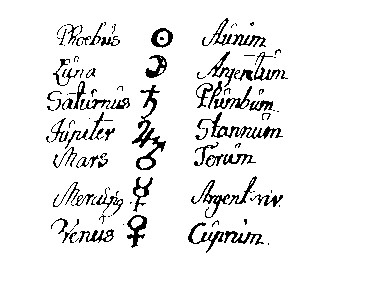 Phoebus ☉ Aurum
Luna ☽ Argentum
Saturnus ♄ Plumbum.
Jupiter ♃ Stannum
Mars ♂ Ferum
Mercurius ☿ Argent. viv.
Venus ♀ Cuprum.